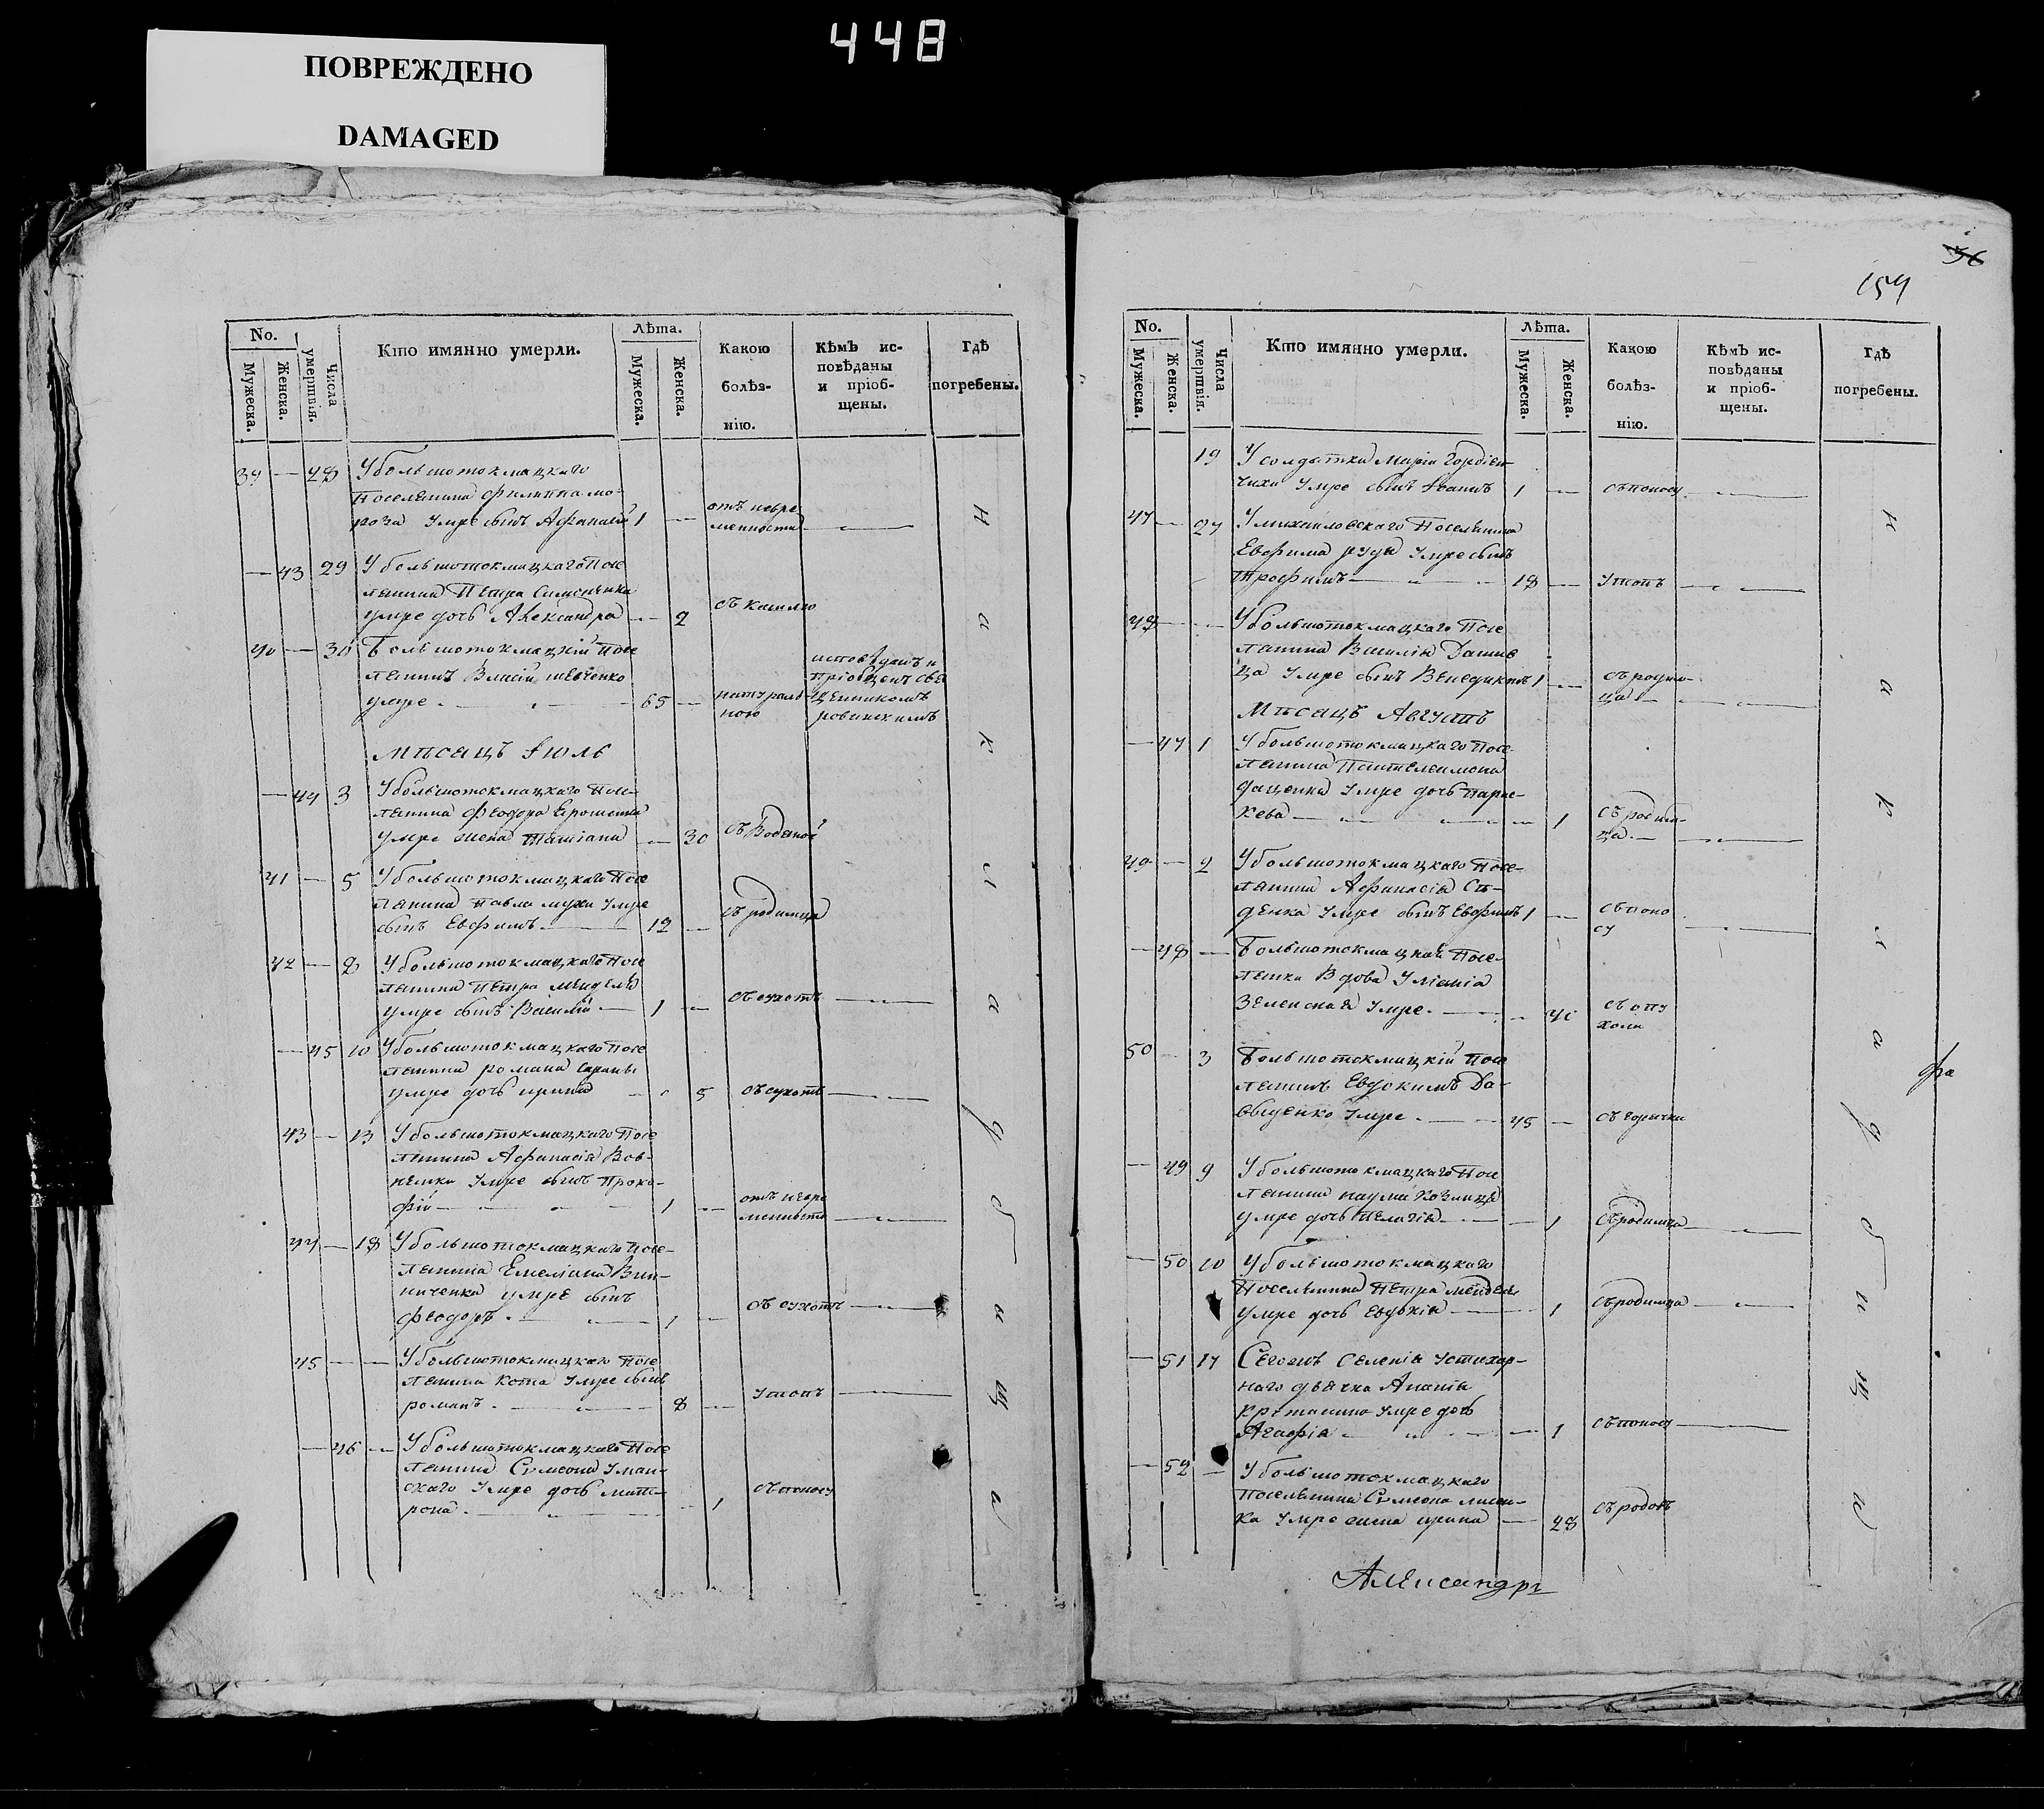 448
ПОВРЕЖДЕНО
DAMAGED
No.
Мужеска.
Женска.
Числа умертвія.
Кто имянно умерли.
Лѣта.
Мужеска.
Женска.
Какою болѣз-
нію.
Кѣмъ ис-
повѣданы
и пріоб-
щены.
Гдѣ
погребены.
39 — 28 У большотокмацкаго
Поселянина Филиппа мо-
роза умре сынъ Афанасій 1 — отъ невре
менности
— 43 29 У большотокмацкаго Посе
лянина Петра Симоненка
умре дочь Александра — 2 съ кашлю
40 — 30 Большотокмацкій Посе
лянинъ Власій Шевченко
умре 65 — натураль
ною
исповѣданъ и
пріобщенъ свя
щенникомъ
ровинскимъ
Мѣсацъ Іюль
— 44 3 У большотокмацкаго Посе-
лянина Феодора Ерошенка
умре жена Татіана — 30 съ Водяной
41 — 5 У большотокмацкаго Посе
лянина Павла мухи умре
сынъ Евфимъ 12 — съ родимца
42 — 8 У большотокмацкаго Посе
лянина Петра Менделя
умре сынъ Василій 1 — съ сухотъ
— 45 10 У большотокмацкаго Посе
лянина Романа
умре дочь Ирина 5 съ сухотъ
43 — 13 У большотокмацкаго Посе
лянина Афанасія Вов-
ненка умре сынъ Проко-
фій 1 — отъ невре
менности
44 — 18 У большотокмацкаго Посе-
лянина Емеліана Вин-
ниченка умре сынъ
Феодоръ 1 — съ сухотъ
45 — — У большотокмацкаго Посе
лянина Кота умре сынъ
романъ 8 — утопъ
— 46 — У большотокмацкаго Посе
лянина Симеона Уман-
скаго умре дочь Мат-
рона 1 съ поносу
На кладбища
36
154
No.
Мужеска.
Женска.
Числа умертвія.
Кто имянно умерли.
Лѣта.
Мужеска.
Женска.
Какою
болѣз-
нію.
Кѣмъ ис-
повѣданы
и пріоб-
щены.
Гдѣ
погребены.
19 У солдатки Маріи Гордіен-
чихи умре сынъ Іоаннъ 1 — съ поносу
47 — 27 У михаиловскаго Поселянина
Евфима руды умре сынъ
Трофимъ 18 — утопъ
48 — — У большотокмацкаго Посе
лянина Василія
ца умре сынъ Венедиктъ 1 — съ родим-
ца
Мѣсацъ Августъ
— 47 1 У большотокмацкаго Посе-
лянина Пантелеимона
даценка умре дочь Парас-
кева 1 съ родим-
ца
49 — 2 У большотокмацкаго Посе-
лянина Афанасія Сѣ-
денка умре сынъ Евфимъ 1 — съ поно
су
— 48 — Большотокмацкая Посе-
лянка Вдова Уліанія
Зеленская умре съ опу
холи
50 — 3 Большотокмацкій Посе
лянинъ Евдокимъ Да-
выденко умре 45 — съ горячки
— 49 9 У большотокмацкаго Посе
лянина Наума Козлица
умре дочь Пелагія — 1 съ родимца
— 50 10 У большотокмацкаго
Поселянина Петра Менделя
умре дочь Евдокія 1 съ родимца
— 51 17 Сегожъ селенія Устихар-
наго дьячка Ананія
умре дочь
Агафія — 1 съ поносу
— 52 — У большотокмацкаго
Поселянина Симеона Лисен-
ка умре жена Ирина — 28 съ родовъ
На кладбища
фа
Александръ